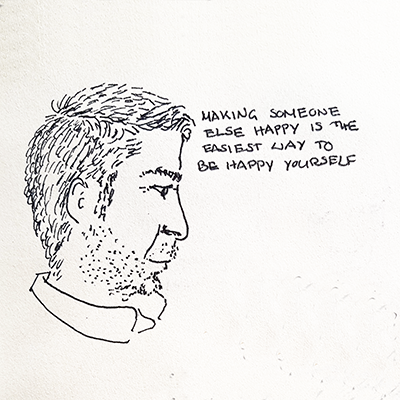 MAKING SOMEONE
ELSE HAPPY IS THE
EASIEST WAY TO
BE HAPPY YOURSELF